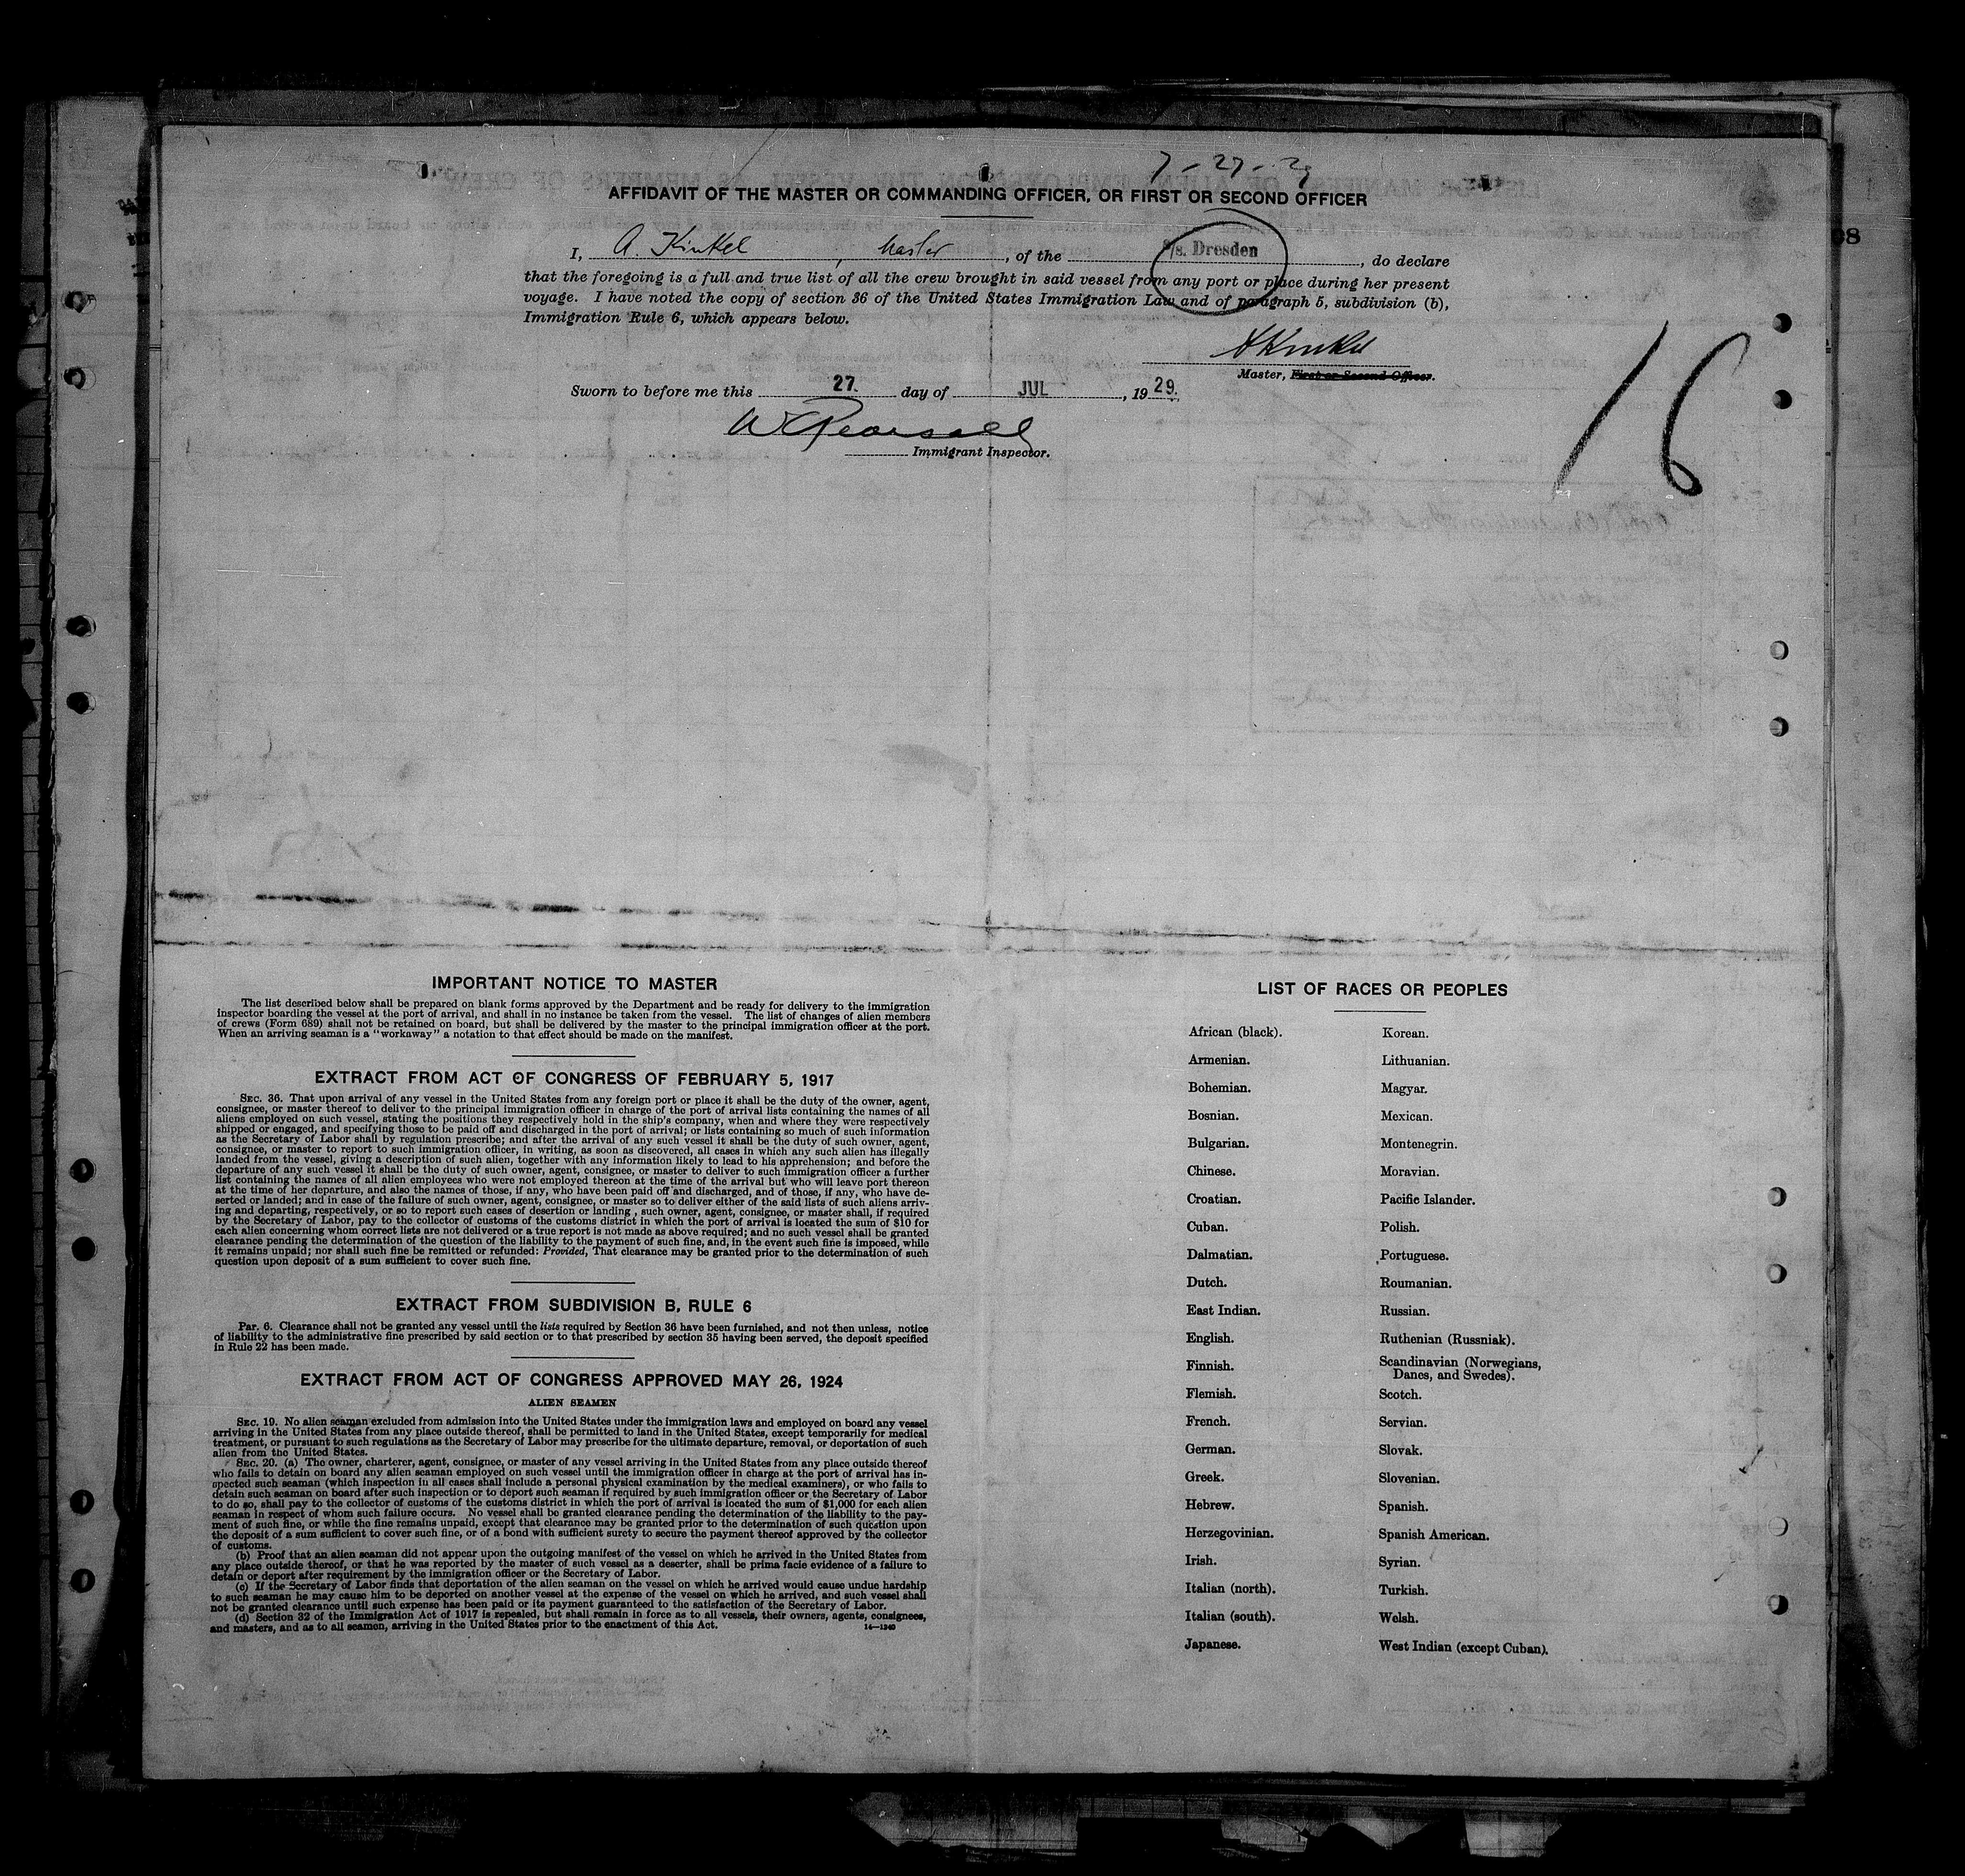 7-27-29
AFFIDAVIT OF THE MASTER OR COMMANDING OFFICER, OR FIRST OR SECOND OFFICER
I, A. Kinkel, Master, of the S/s. Dresden, do declare
that the foregoing is a full and true list of all the crew brought in said vessel from any port or place during her present
voyage. I have noted the copy of section 36 of the United States Immigration Law and of paragraph 5, subdivision (b),
Immigration Rule 6, which appears below.
A Kinkel
Master, First or Second Officer.
16
Sworn to before me this 27. day of JUL, 1929.
W C Pearsall
Immigrant Inspector.
08
IMPORTANT NOTICE TO MASTER
The list described below shall be prepared on blank forms approved by the Department and be ready for delivery to the immigration
inspector boarding the vessel at the port of arrival, and shall in no instance be taken from the vessel. The list of changes of alien members
of crews (Form 689) shall not be retained on board, but shall be delivered by the master to the principal immigration officer at the port.
When an arriving seaman is a "workaway" a notation to that effect should be made on the manifest.
EXTRACT FROM ACT OF CONGRESS OF FEBRUARY 5, 1917
SEC. 36. That upon arrival of any vessel in the United States from any foreign port or place it shall be the duty of the owner, agent,
consignee, or master thereof to deliver to the principal immigration officer in charge of the port of arrival lists containing the names of all
aliens employed on such vessel, stating the positions they respectively hold in the ship's company, when and where they were respectively
shipped or engaged, and specifying those to be paid off and discharged in the port of arrival; or lists containing so much of such information
as the Secretary of Labor shall by regulation prescribe; and after the arrival of any such vessel it shall be the duty of such owner, agent,
consignee, or master to report to such immigration officer, in writing, as soon as discovered, all cases in which any such alien has illegally
landed from the vessel, giving a description of such alien, together with any information likely to lead to his apprehension; and before the
departure of any such vessel it shall be the duty of such owner, agent, consignee, or master to deliver to such immigration officer a further
list containing the names of all alien employees who were not employed thereon at the time of the arrival but who will leave port thereon
at the time of her departure, and also the names of those, if any, who have been paid off and discharged, and of those, if any, who have de-
serted or landed; and in case of the failure of such owner, agent, consignee, or master so to deliver either of the said lists of such aliens arriv-
ing and departing, respectively, or so to report such cases of desertion or landing , such owner, agent, consignee, or master shall, if required
by the Secretary of Labor, pay to the collector of customs of the customs district in which the port of arrival is located the sum of $10 for
each alien concerning whom correct lists are not delivered or a true report is not made as above required; and no such vessel shall be granted
clearance pending the determination of the question of the liability to the payment of such fine, and, in the event such fine is imposed, while
it remains unpaid; nor shall such fine be remitted or refunded: Provided, That clearance may be granted prior to the determination of such
question upon deposit of a sum sufficient to cover such fine.
EXTRACT FROM SUBDIVISION B, RULE 6
Par. 6. Clearance shall not be granted any vessel until the lists required by Section 36 have been furnished, and not then unless, notice
of liability to the administrative fine prescribed by said section or to that prescribed by section 35 having been served, the deposit specified
in Rule 22 has been made.
EXTRACT FROM ACT OF CONGRESS APPROVED MAY 26, 1924
ALIEN SEAMEN
SEC. 19. No alien seaman excluded from admission into the United States under the immigration laws and employed on board any vessel
arriving in the United States from any place outside thereof, shall be permitted to land in the United States, except temporarily for medical
treatment, or pursuant to such regulations as the Secretary of Labor may prescribe for the ultimate departure, removal, or deportation of such
alien from the United States.
SEC. 20. (a) The owner, charterer, agent, consignee, or master of any vessel arriving in the United States from any place outside thereof
who fails to detain on board any alien seaman employed on such vessel until the immigration officer in charge at the port of arrival has in-
spected such seaman (which inspection in all cases shall include a personal physical examination by the medical examiners), or who fails to
detain such seaman on board after such inspection or to deport such seaman if required by such immigration officer or the Secretary of Labor
to do so, shall pay to the collector of customs of the customs district in which the port of arrival is located the sum of $1,000 for each alien
seaman in respect of whom such failure occurs. No vessel shall be granted clearance pending the determination of the liability to the pay-
ment of such fine, or while the fine remains unpaid, except that clearance may be granted prior to the determination of such question upon
the deposit of a sum sufficient to cover such fine, or of a bond with sufficient surety to secure the payment thereof approved by the collector
of customs.
(b) Proof that an alien seaman did not appear upon the outgoing manifest of the vessel on which he arrived in the United States from
any place outside thereof, or that he was reported by the master of such vessel as a deserter, shall be prima facie evidence of a failure to
detain or deport after requirement by the immigration officer or the Secretary of Labor.
(c) If the Secretary of Labor finds that deportation of the alien seaman on the vessel on which he arrived would cause undue hardship
to such seaman he may cause him to be deported on another vessel at the expense of the vessel on which he arrived, and such vessel shall
not be granted clearance until such expense has been paid or its payment guaranteed to the satisfaction of the Secretary of Labor.
(d) Section 32 of the Immigration Act of 1917 is repealed, but shall remain in force as to all vessels, their owners, agents, consignees,
and masters, and as to all seamen, arriving in the United States prior to the enactment of this Act.
14—1240
LIST OF RACES OR PEOPLES
African (black).
Armenian.
Bohemian.
Bosnian.
Bulgarian.
Chinese.
Croatian.
Cuban.
Dalmatian.
Dutch.
East Indian.
English.
Finnish.
Flemish.
French.
German.
Greek.
Hebrew.
Herzegovinian.
Irish.
Italian (north).
Italian (south).
Japanese.
Korean.
Lithuanian.
Magyar.
Mexican.
Montenegrin.
Moravian.
Pacific Islander.
Polish.
Portuguese.
Roumanian.
Russian.
Ruthenian (Russniak).
Scandinavian (Norwegians,
Danes, and Swedes).
Scotch.
Servian.
Slovak.
Slovenian.
Spanish.
Spanish American.
Syrian.
Turkish.
Welsh.
West Indian (except Cuban).